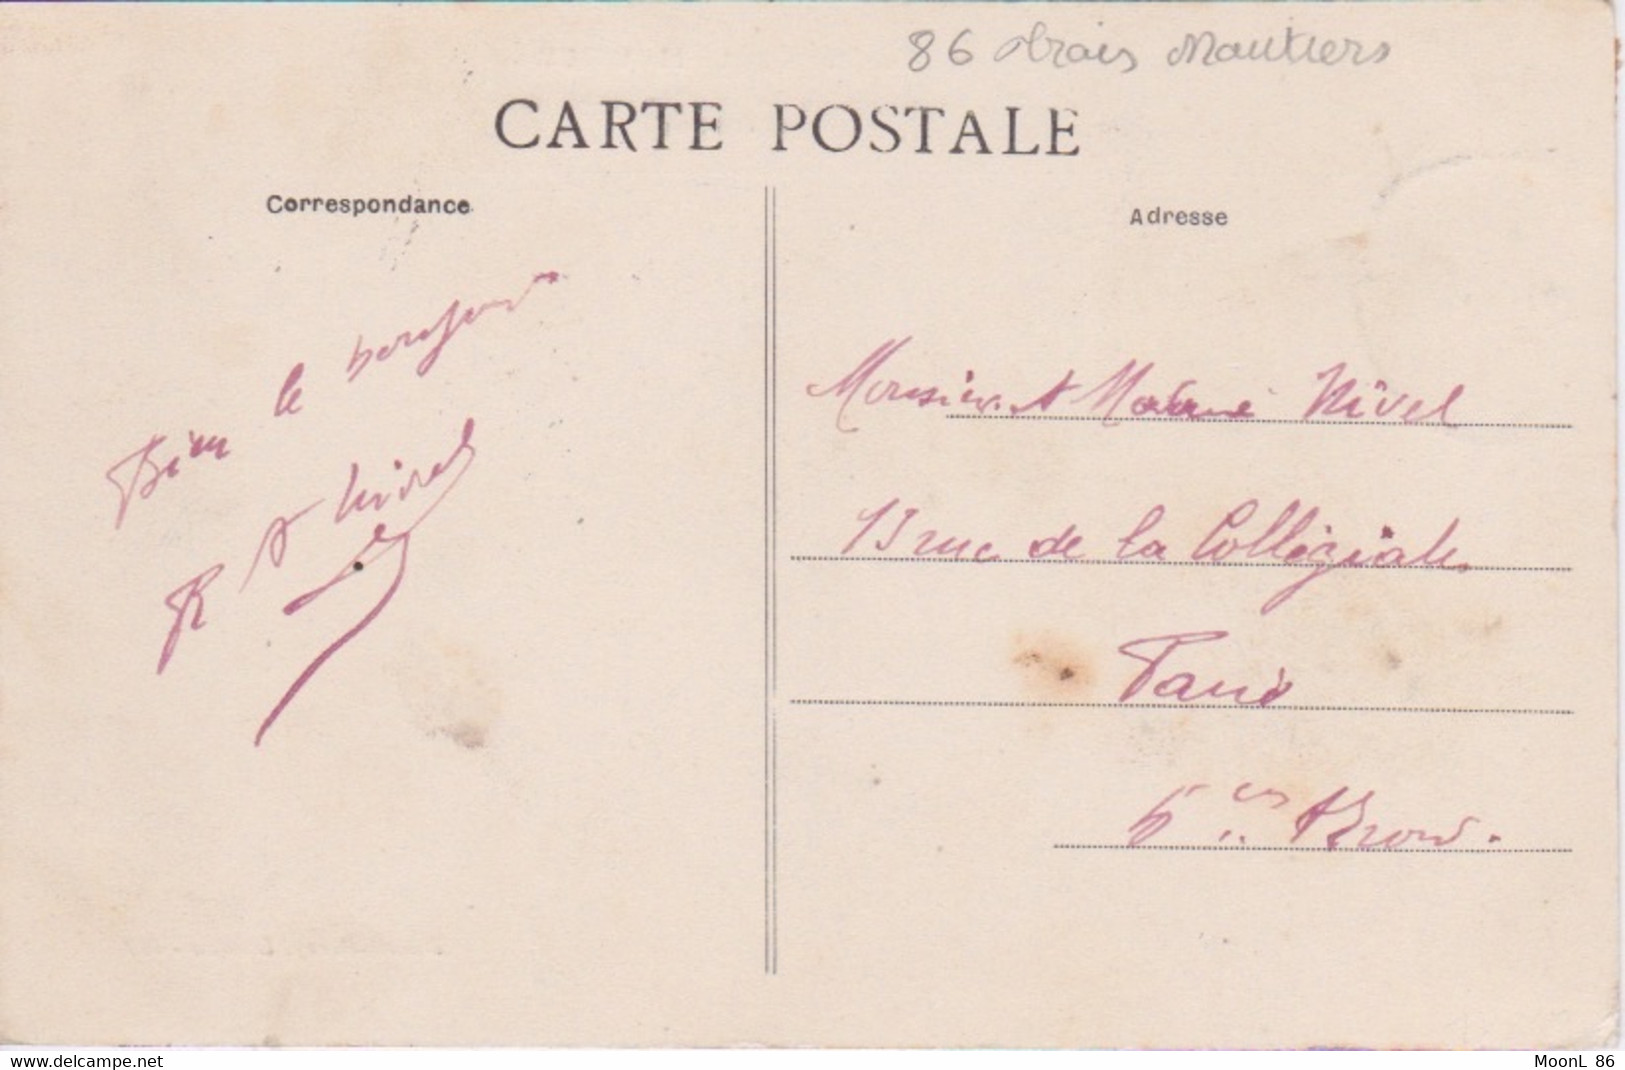 86 Trois Moutiers
CARTE POSTALE
Correspondance
Adresse
Bien le bonjour
R Nivel
Monsieur et Madame Nivel
13 rue de la Collégiale
Paris
5 es Arrond.
www.delcampe.net
MoonL 86